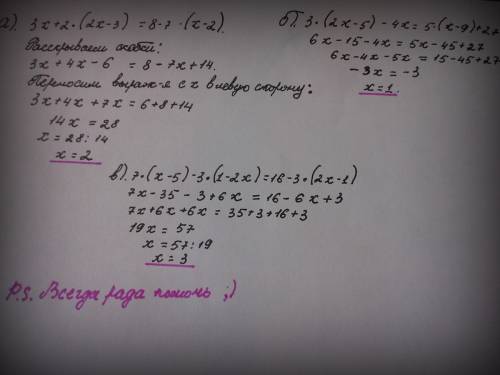 а). 3х+2·(2х-3)=8-7·(х-2).
Раскрываем скобки:
3х+4х-6 = 8-7х+14.
Переносим выраж-я с х в левую сторону:
3х+4х+7х=6+8+14
14х = 28
х = 28:14
х = 2
б). 3·(2х-5)-4х=5·(х-9)+27
6х-15-4х=5х-45+27
6х-4х-5х=15-45+27
-3х=-3
х=1.
в). 7·(х-5)-3·(1-2х)=16-3·(2х-1)
7х-35-3+6х = 16-6х+3
7х+6х+6х=35+3+16+3
19х = 57
х = 57:19
х = 3
P.S. Всегда рада помочь ;)